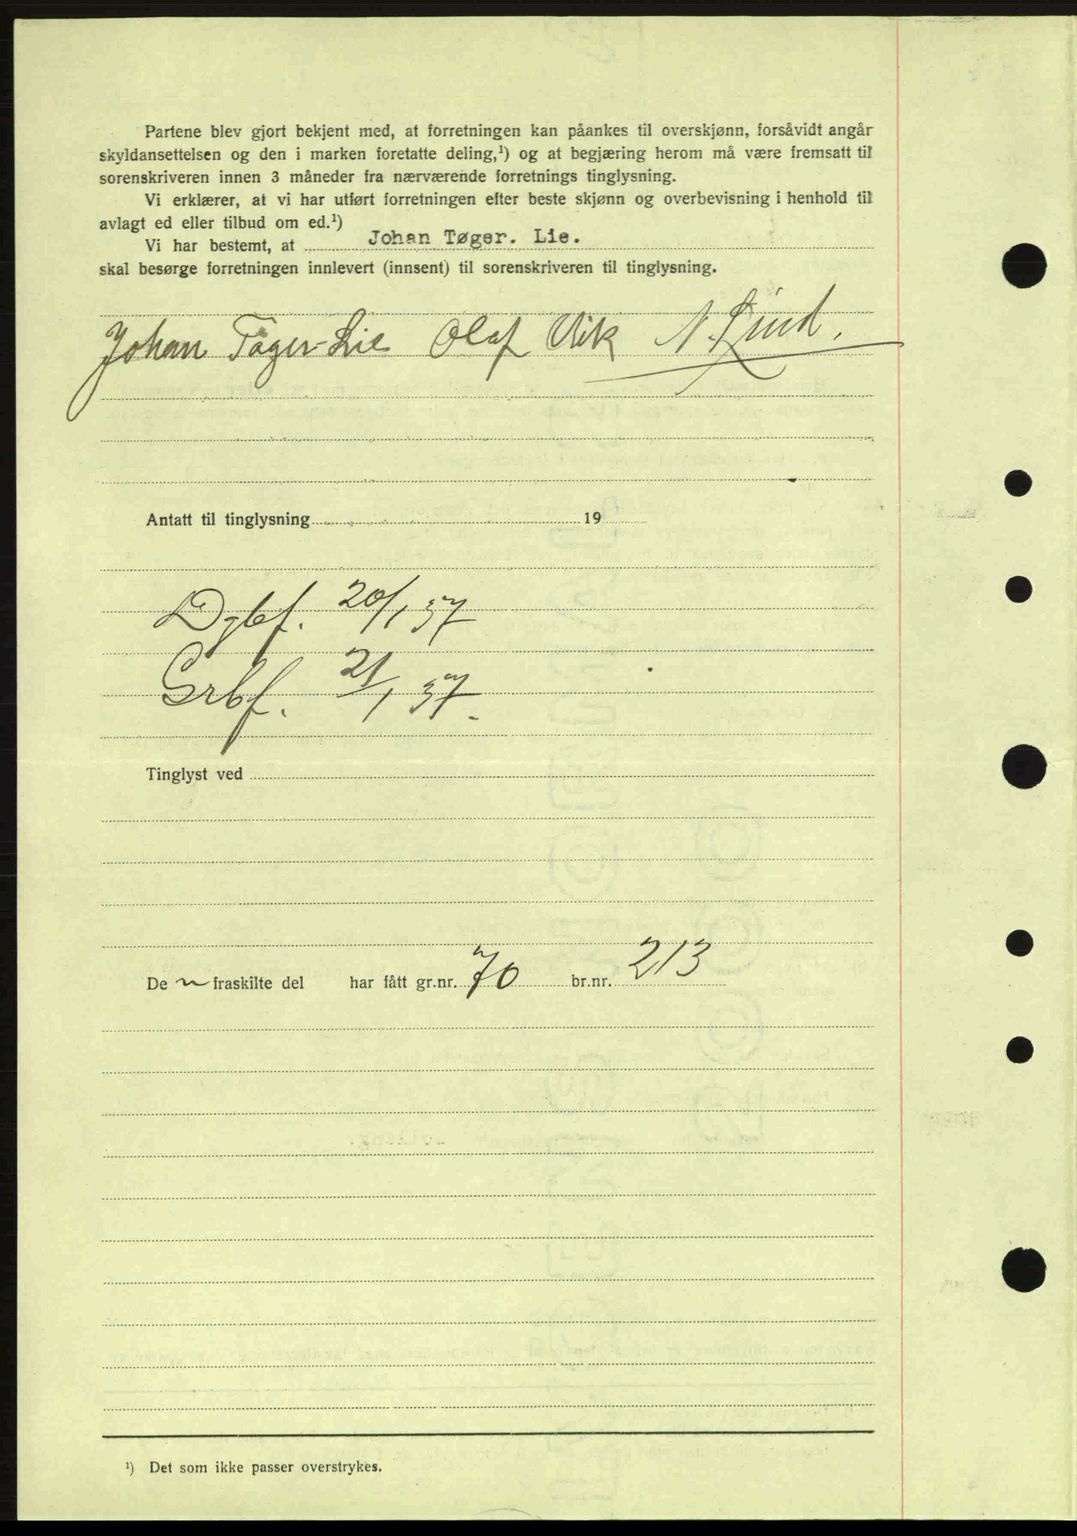 Partene blev gjort bekjent med, at forretningen kan påankes til overskjønn, forsåvidt angår
skyldansettelsen og den i marken foretatte deling,¹) og at begjæring herom må være fremsatt til
sorenskriveren innen 3 måneder fra nærværende forretnings tinglysning.
Vi erklærer, at vi har utført forretningen efter beste skjønn og overbevisning i henhold til
avlagt ed eller tilbud om ed.¹)
Vi har bestemt, at Johan Tøger. Lie.
skal besørge forretningen innlevert (innsent) til sorenskriveren til tinglysning.
Johan Tøger-Lie Olaf Vik N. Lind.
Antatt til tinglysning 19
Dgbf. 20/1 37
Grbf. 21/1 37.
Tinglyst ved
De n fraskilte del har fått gr.nr. 70 br.nr. 213
¹) Det som ikke passer overstrykes.